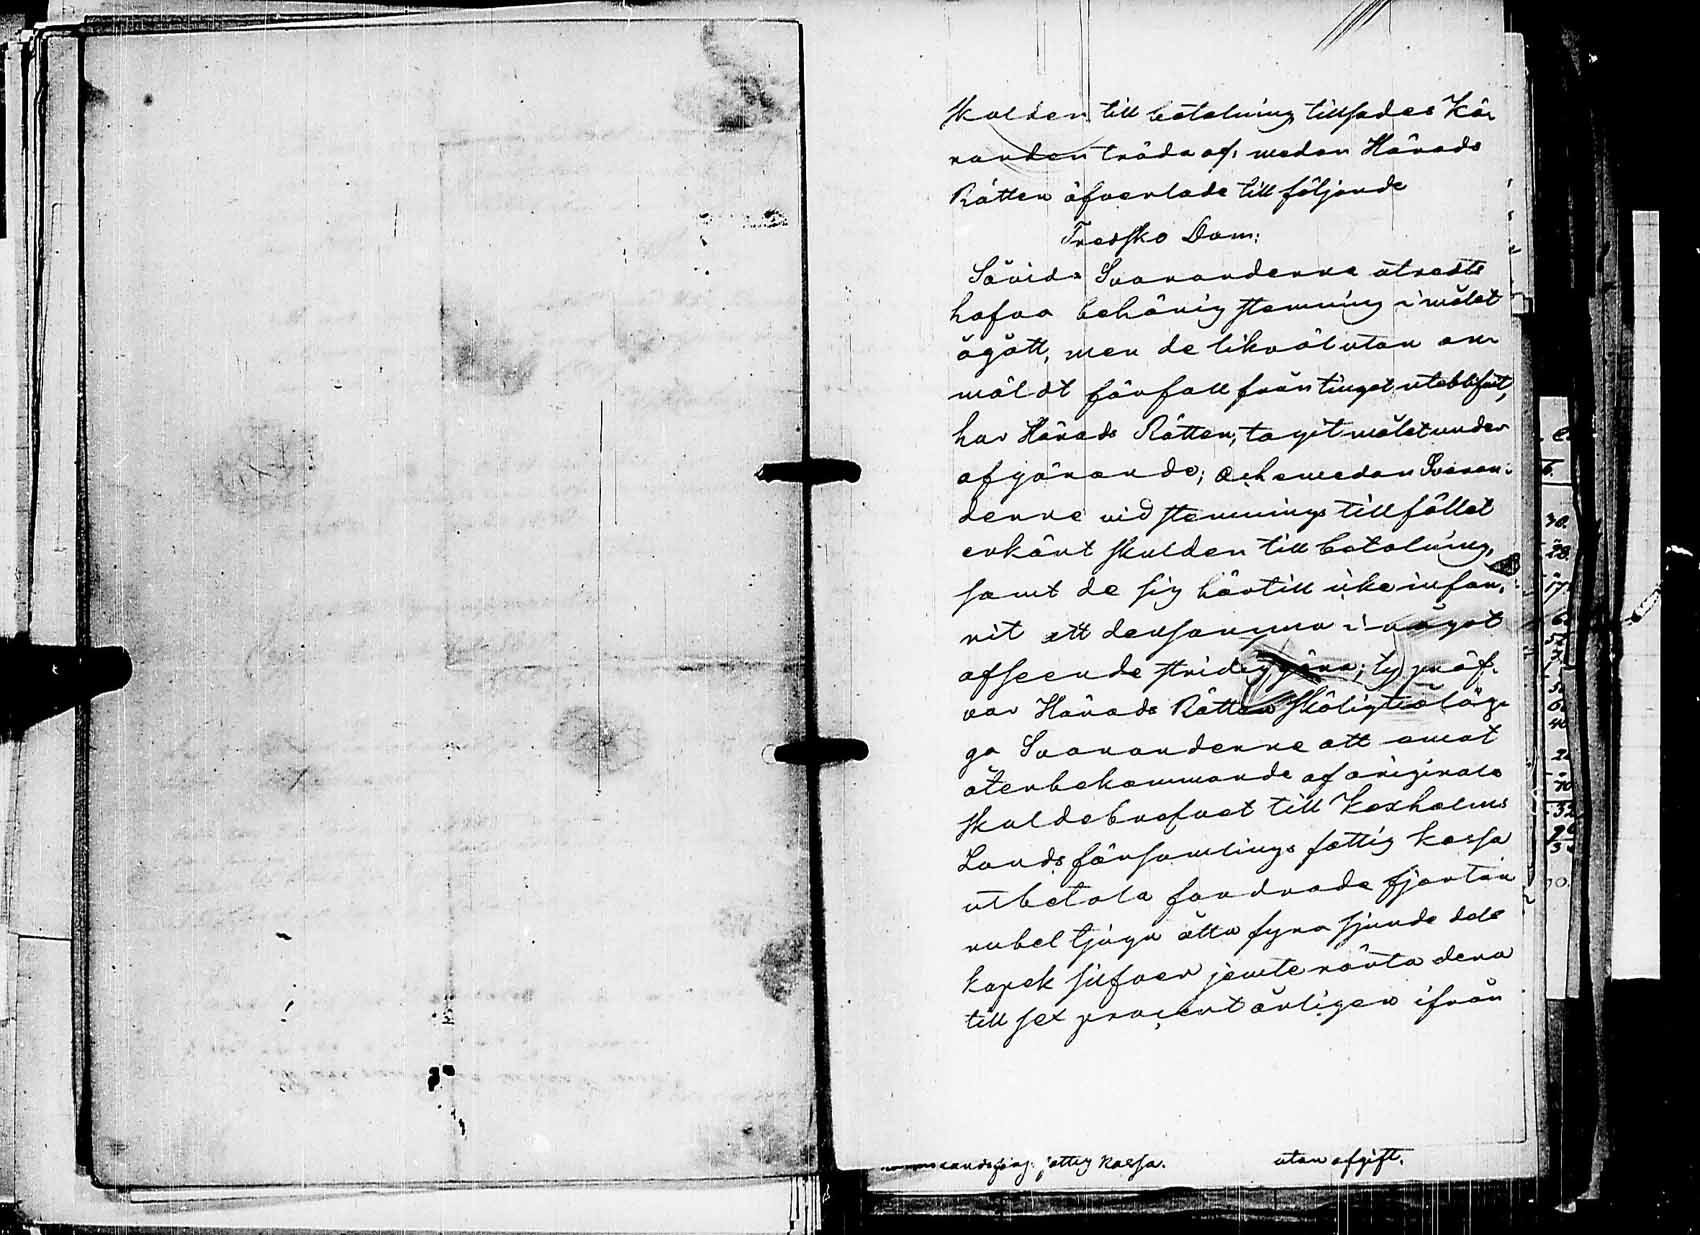 skulden till betalning tillsades Kä-
randen träda af, medan Härads
Rätten öfverlade till följande
Tredsko Dom:
Såvida Svarandene utredts
hafva behörig stemning i målet
ågått, men de likväl utan an-
mäldt förfall från tinget uteblifvit,
har Härads Rätten, tagit målet under
afgörande; Och emedan Svaran-
dene vid stemnings tillfället
erkänt skulden till betalning,
samt de sig härtill icke infun-
nit att densamma i något
afseende stridig göra; ty pröf-
var Härads Rätten skäligt åläg-
ga Svarandene att emot
återbekommande af originale
skuldebrefvet till Kexholms
Landsförsamlings fattig kassa
utbetala fordrade fjorton
rubel tjugu åtta fyra sjunde dels
kopek silfver jemte ränta derå
till sex procent årligen ifrån
Landsförs: fattig kassa. utan afgift.
30.
28.
17.
6.
40
2.
70
32